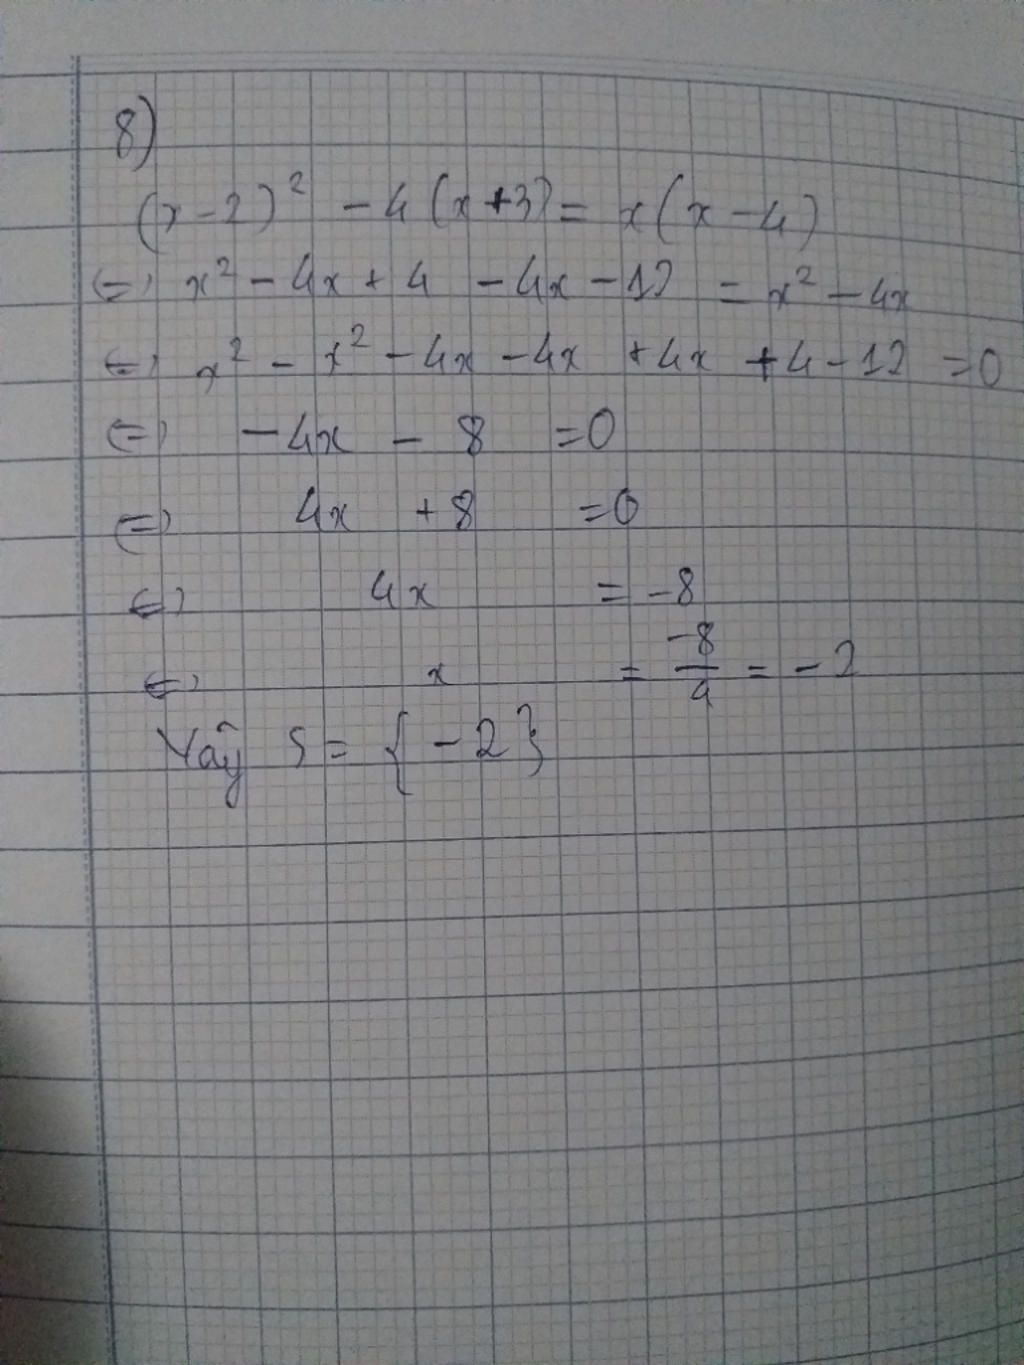 8)
(x-2)² - 4(x+3) = x(x-4)
⇔ x² - 4x + 4 - 4x - 12 = x² - 4x
⇔ x² - x² - 4x - 4x + 4x + 4 - 12 = 0
⇔ -4x - 8 = 0
⇔ 4x + 8 = 0
⇔ 4x = -8
⇔ x = -8/4 = -2
Vậy S = {-2}